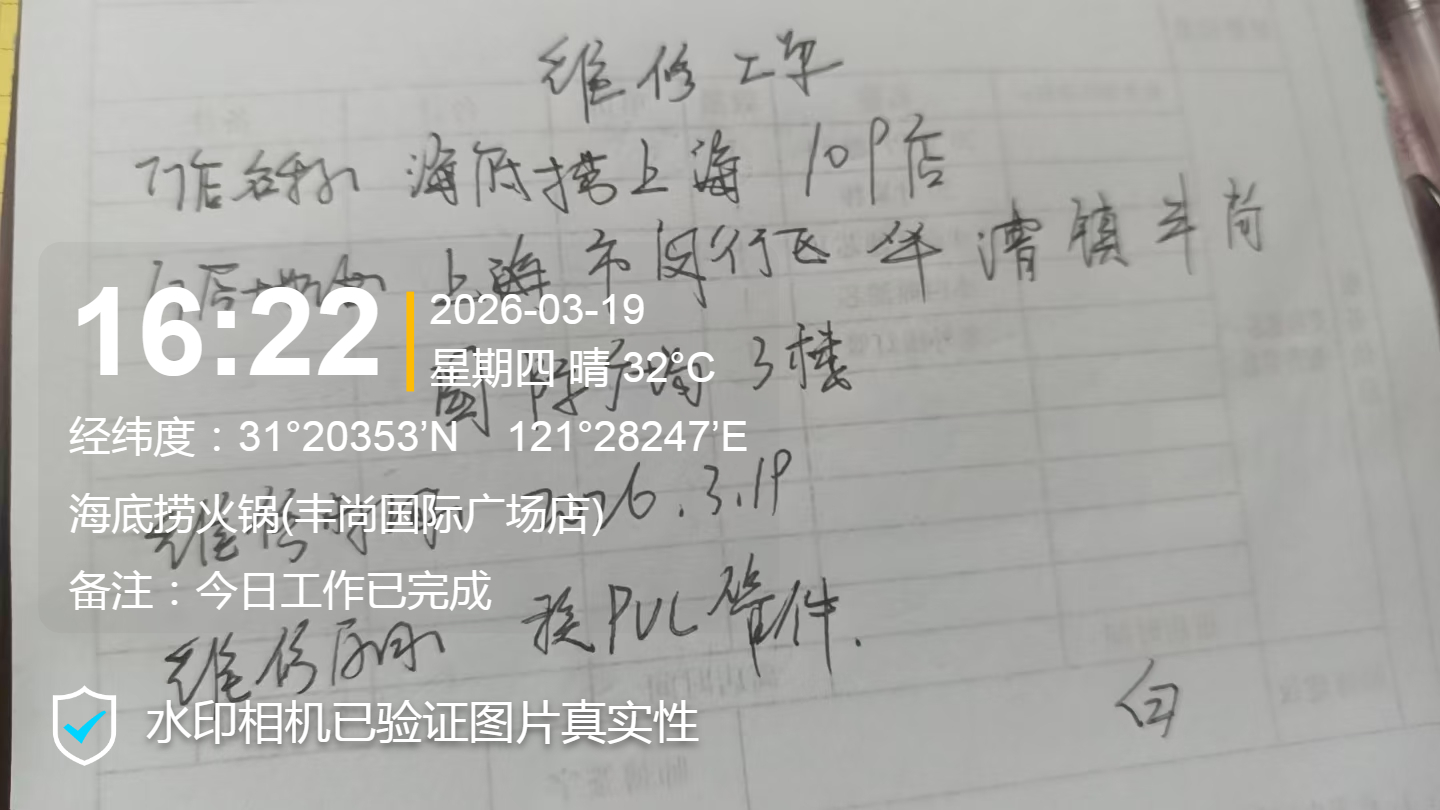 维修工单
门店名称 海底捞上海109店
门店地址 上海市闵行区华漕镇丰尚
国际广场3楼
维修时间 2026.3.19
维修后期 换PVC管件.
白
16:22
2026-03-19
星期四 晴 32°C
经纬度：31°20353’N 121°28247’E
海底捞火锅(丰尚国际广场店)
备注：今日工作已完成
水印相机已验证图片真实性